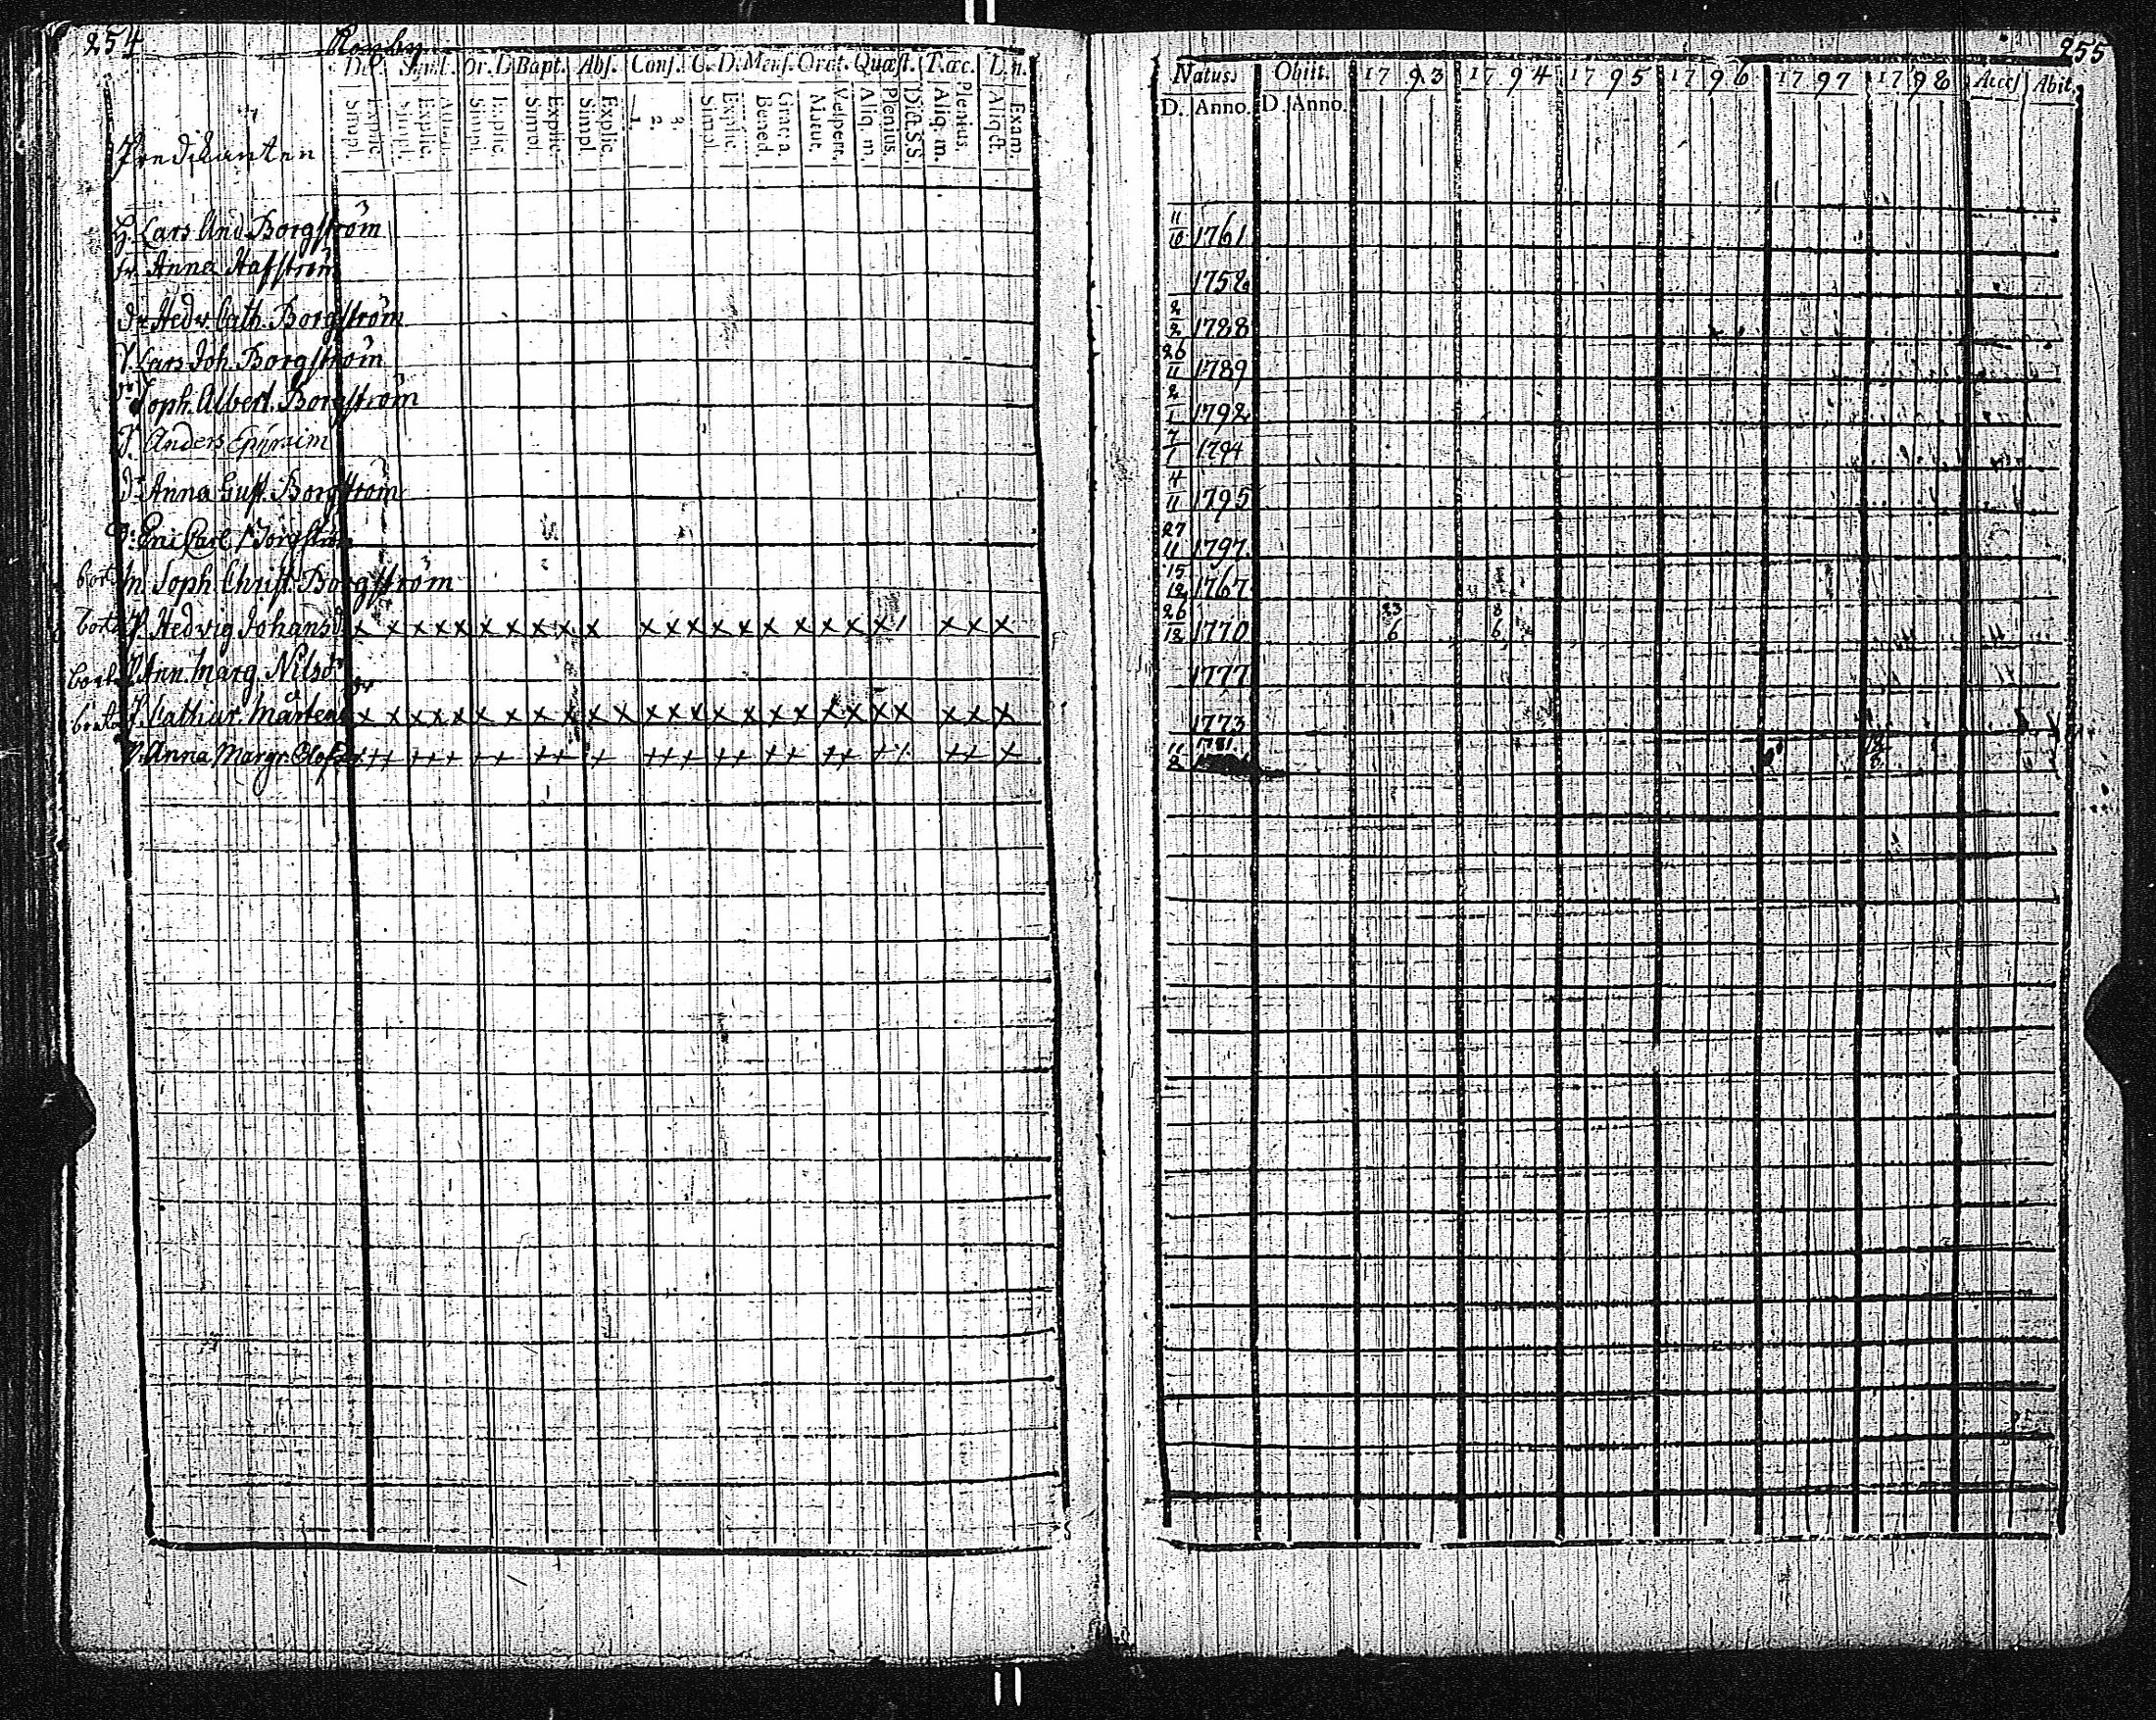 254
Dec. Symb. Or. D Bapt. Abs. Conf. C. D. Mens. Orat. Quæst. T. œc. L. n.
Simpl. Explic. Simpl. Explic. Athan. Simpl. Explic. Simpl. Explic. Simpl. Explic. 1. 2. 3. Simpl. Explic. Bened. Grat. a. Matut. Vespert. Aliq. m. Plenius. Dicta S.S. Aliq. m. Plenius. Aliqct. Exam.
Predikanten
H. Lars And. Borgström
fr Anna Hafström
dr Hedv. Cath. Borgström
S. Lars Joh. Borgström
Soph. Albert. Borgström
S. Anders Ephraim
d. Anna Gust. Borgström
Eric Carl Borgström
bort m Soph. Christ. Borgström
borta P. Hedvig Johansd x x x x x x x x x x x x x x x x x x x x x x x x
borta P. Ann. Marg. Nilsd
borta P. Cathar. Mårtens x x x x x x x x x x x x x x x x x x x x x x x x x
P. Anna Margr. Olofsd
255
Natus. Obiit. 1793 1794 1795 1796 1797 1798 Acces Abit
D. Anno. D. Anno.
11/10 1761
1752
2/2 1788
26/11 1789
2/1 1792
7/1 1794
4/11 1795
27/11 1797
15/12 1767
26/12 1770 23/6 8/6
1777
1773
11/2 1781